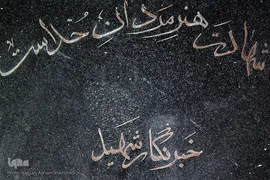 شهادت هنر مردان خداست
خبرنگار شهید